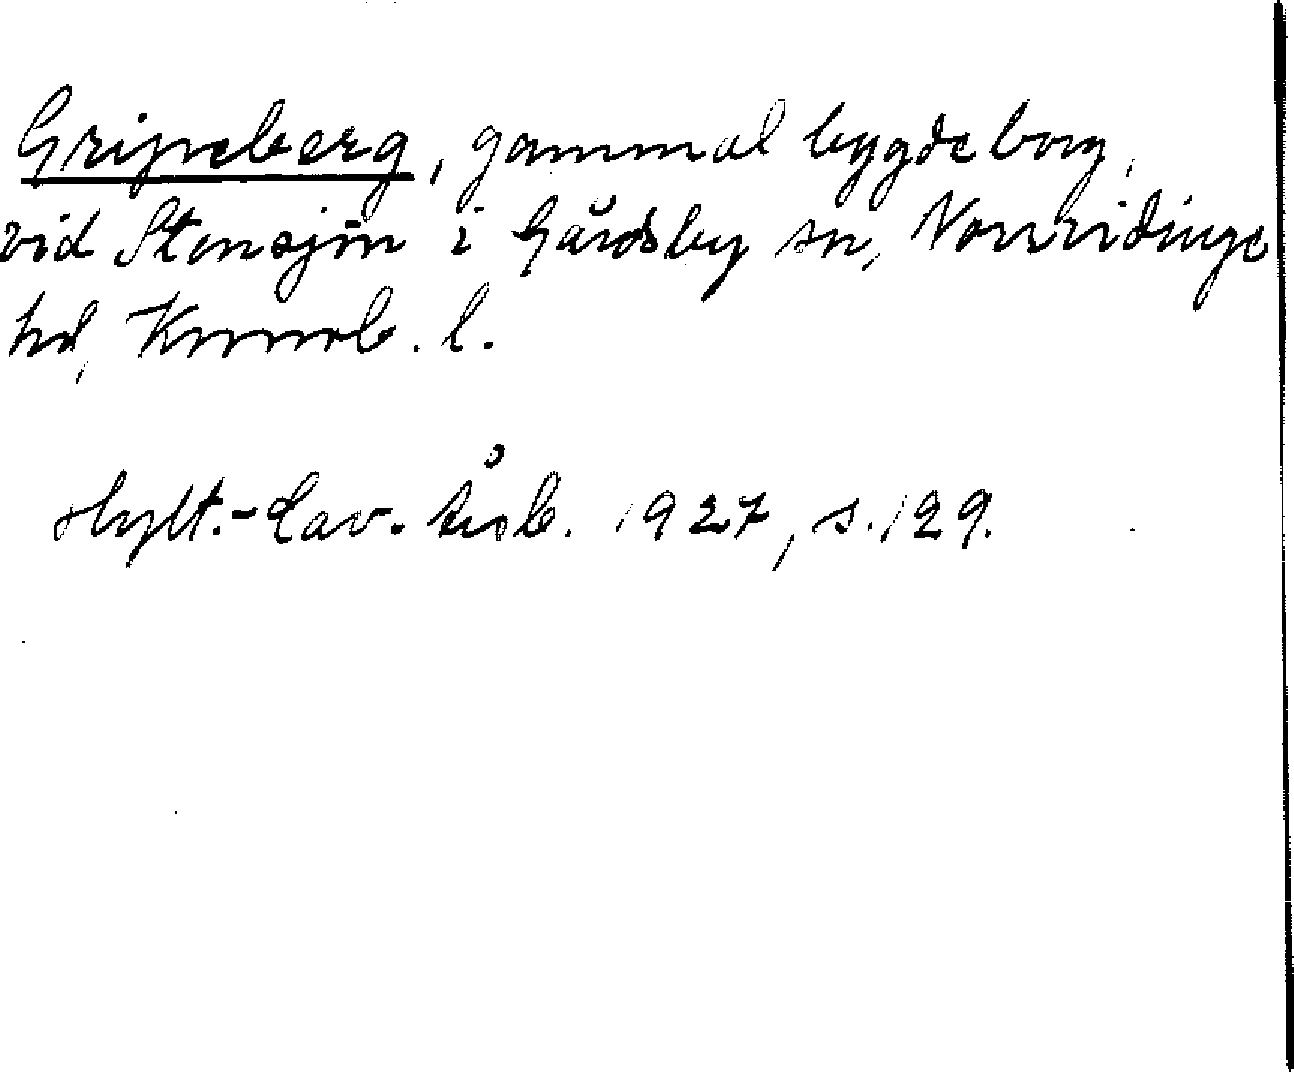 Gripeberg, gammal bygdeborg,
vid Stensjön i Gårdsby sn, Norrvidinge
hd, Kronob. l.
Hylt.-Cav. årsb. 1927, s. 129.